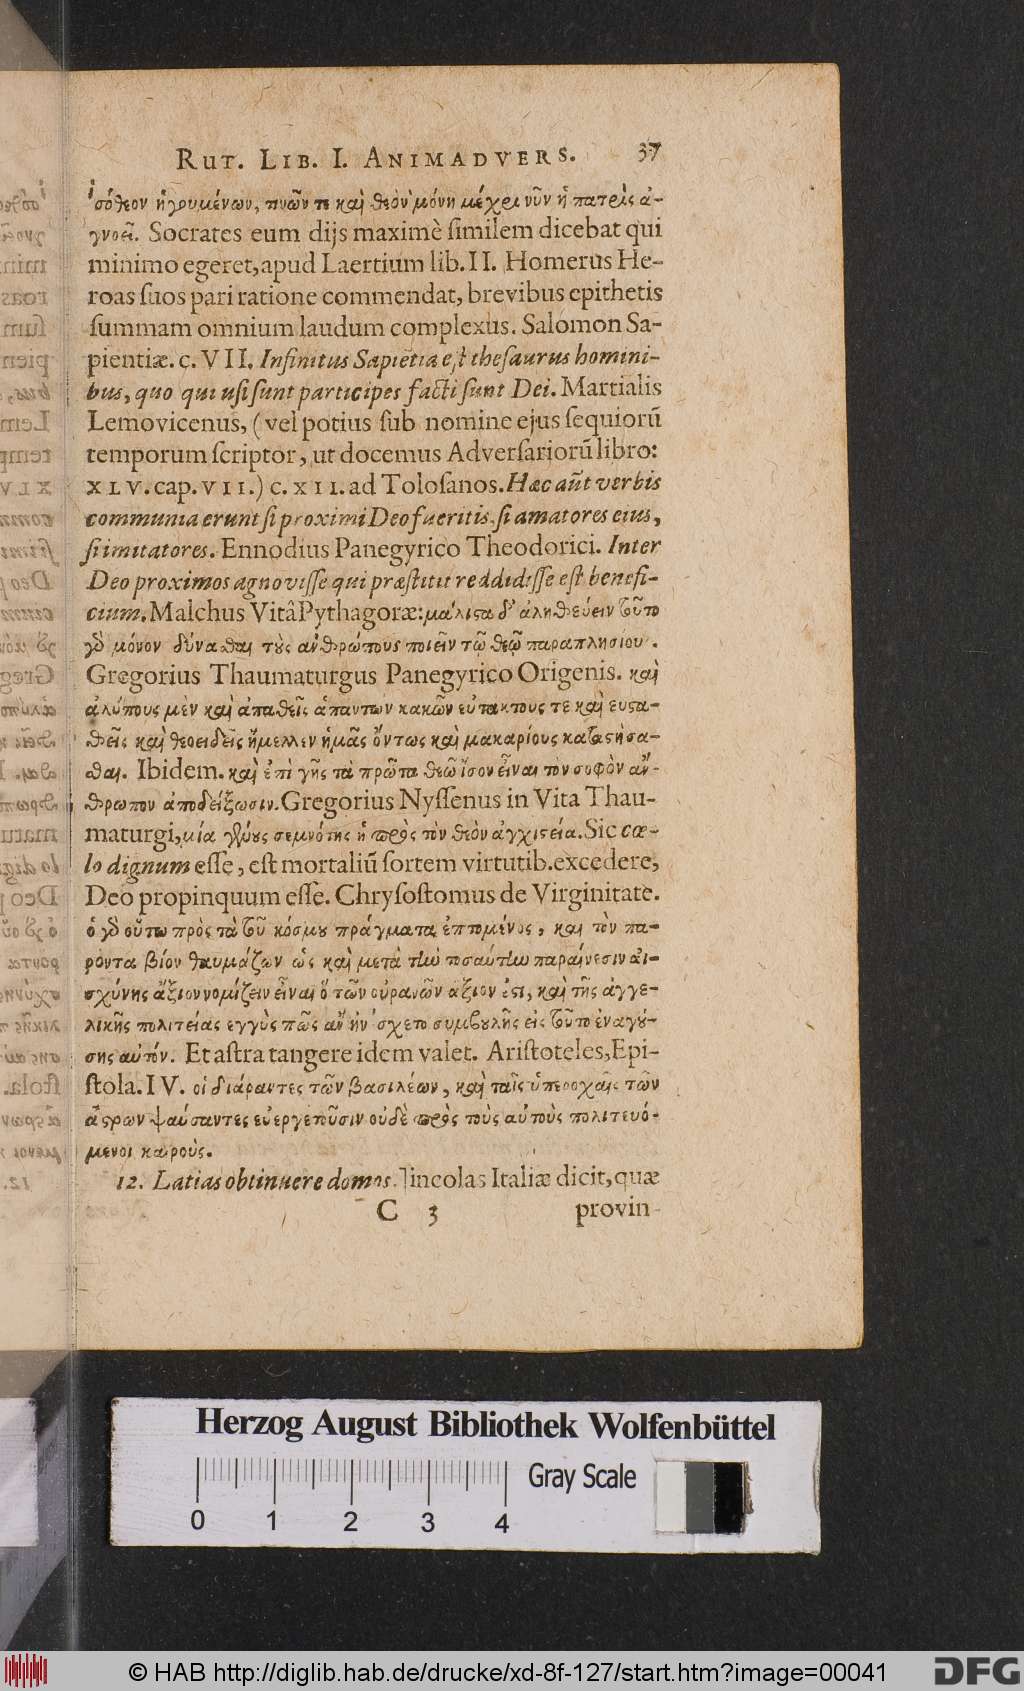 RUT. LIB. I. ANIMADVERS. 37
ἰσόθεον ἡγουμένων, πνῶν τε καὶ θεὸν μόνη μέχρι νῦν ἡ πατρὶς ἀ-
γνοεῖ. Socrates eum dijs maximè ſimilem dicebat qui
minimo egeret, apud Laertium lib. II. Homerus He-
roas ſuos pari ratione commendat, brevibus epithetis
ſummam omnium laudum complexus. Salomon Sa-
pientiæ. c. VII. Infinitus Sapiētia eſt theſaurus homini-
bus, quo qui uſi ſunt participes facti ſunt Dei. Martialis
Lemovicenus, (vel potius ſub nomine ejus ſequiorū
temporum ſcriptor, ut docemus Adverſariorū libro:
XLV. cap. VII.) c. XII. ad Toloſanos. Hæc aūt verbis
communia erunt ſi proximi Deo fueritis, ſi amatores eius,
ſi imitatores. Ennodius Panegyrico Theodorici. Inter
Deo proximos agnoviſſe qui præſtitit reddidiſſe eſt benefi-
cium. Malchus Vitâ Pythagoræ: μάλιστα δ' ἀληθεύειν τοῦτο
γὸ μόνον δύναθαι τοὺς ἀνθρώπους ποιεῖν τῷ θεῷ παραπλησίου.
Gregorius Thaumaturgus Panegyrico Origenis. καὶ
ἀλύπους μὲν καὶ ἀπαθεῖς ἁπάντων κακῶν εὐτάκτους τε καὶ εὐστα-
θεῖς καὶ θεοειδεῖς ἤμελλεν ἡμᾶς ὄντως καὶ μακαρίους καταστήσα-
θαι. Ibidem. καὶ ἐπὶ γῆς τὰ πρῶτα θεῷ ἴσον εἶναι τὸν σοφὸν ἄν-
θρωπον ἀποδείξωσιν. Gregorius Nyſſenus in Vita Thau-
maturgi, μία γένους σεμνότης ἡ πρὸς τὸν θεὸν ἀγχιστεία. Sic cœ-
lo dignum eſſe, eſt mortaliū ſortem virtutib. excedere,
Deo propinquum eſſe. Chryſoſtomus de Virginitate.
ὁ γὸ οὕτω πρὸς τὰ τοῦ κόσμου πράγματα ἐπτομένος, καὶ τὸν πα-
ρόντα βίον θαυμάζων ὡς καὶ μετὰ τὴν τοσαύτην παραίνεσιν αἰ-
σχύνης ἄξιον νομίζειν εἶναι ὅ τῶν οὐρανῶν ἄξιον ἐστι, καὶ τῆς ἀγγε-
λικῆς πολιτείας ἐγγὺς πῶς ἂν ἠν σχετο συμβουλῆς εἰς τοῦτο ἐναγού-
σης αὐτόν. Et aſtra tangere idem valet. Ariſtoteles, Epi-
ſtola. IV. οἱ διάραντες τῶν βασιλέων, καὶ ταῖς ὑπεροχαῖς τῶν
ἄστρων ψαύσαντες εὐεργετοῦσιν οὐδὲ πρὸς τοὺς αὐτοὺς πολιτευό-
μενοι καιροὺς.
12. Latias obtinuere domos.] incolas Italiæ dicit, quæ
C 3 provin-
Herzog August Bibliothek Wolfenbüttel
Gray Scale
0 1 2 3 4
© HAB http://diglib.hab.de/drucke/xd-8f-127/start.htm?image=00041
DFG